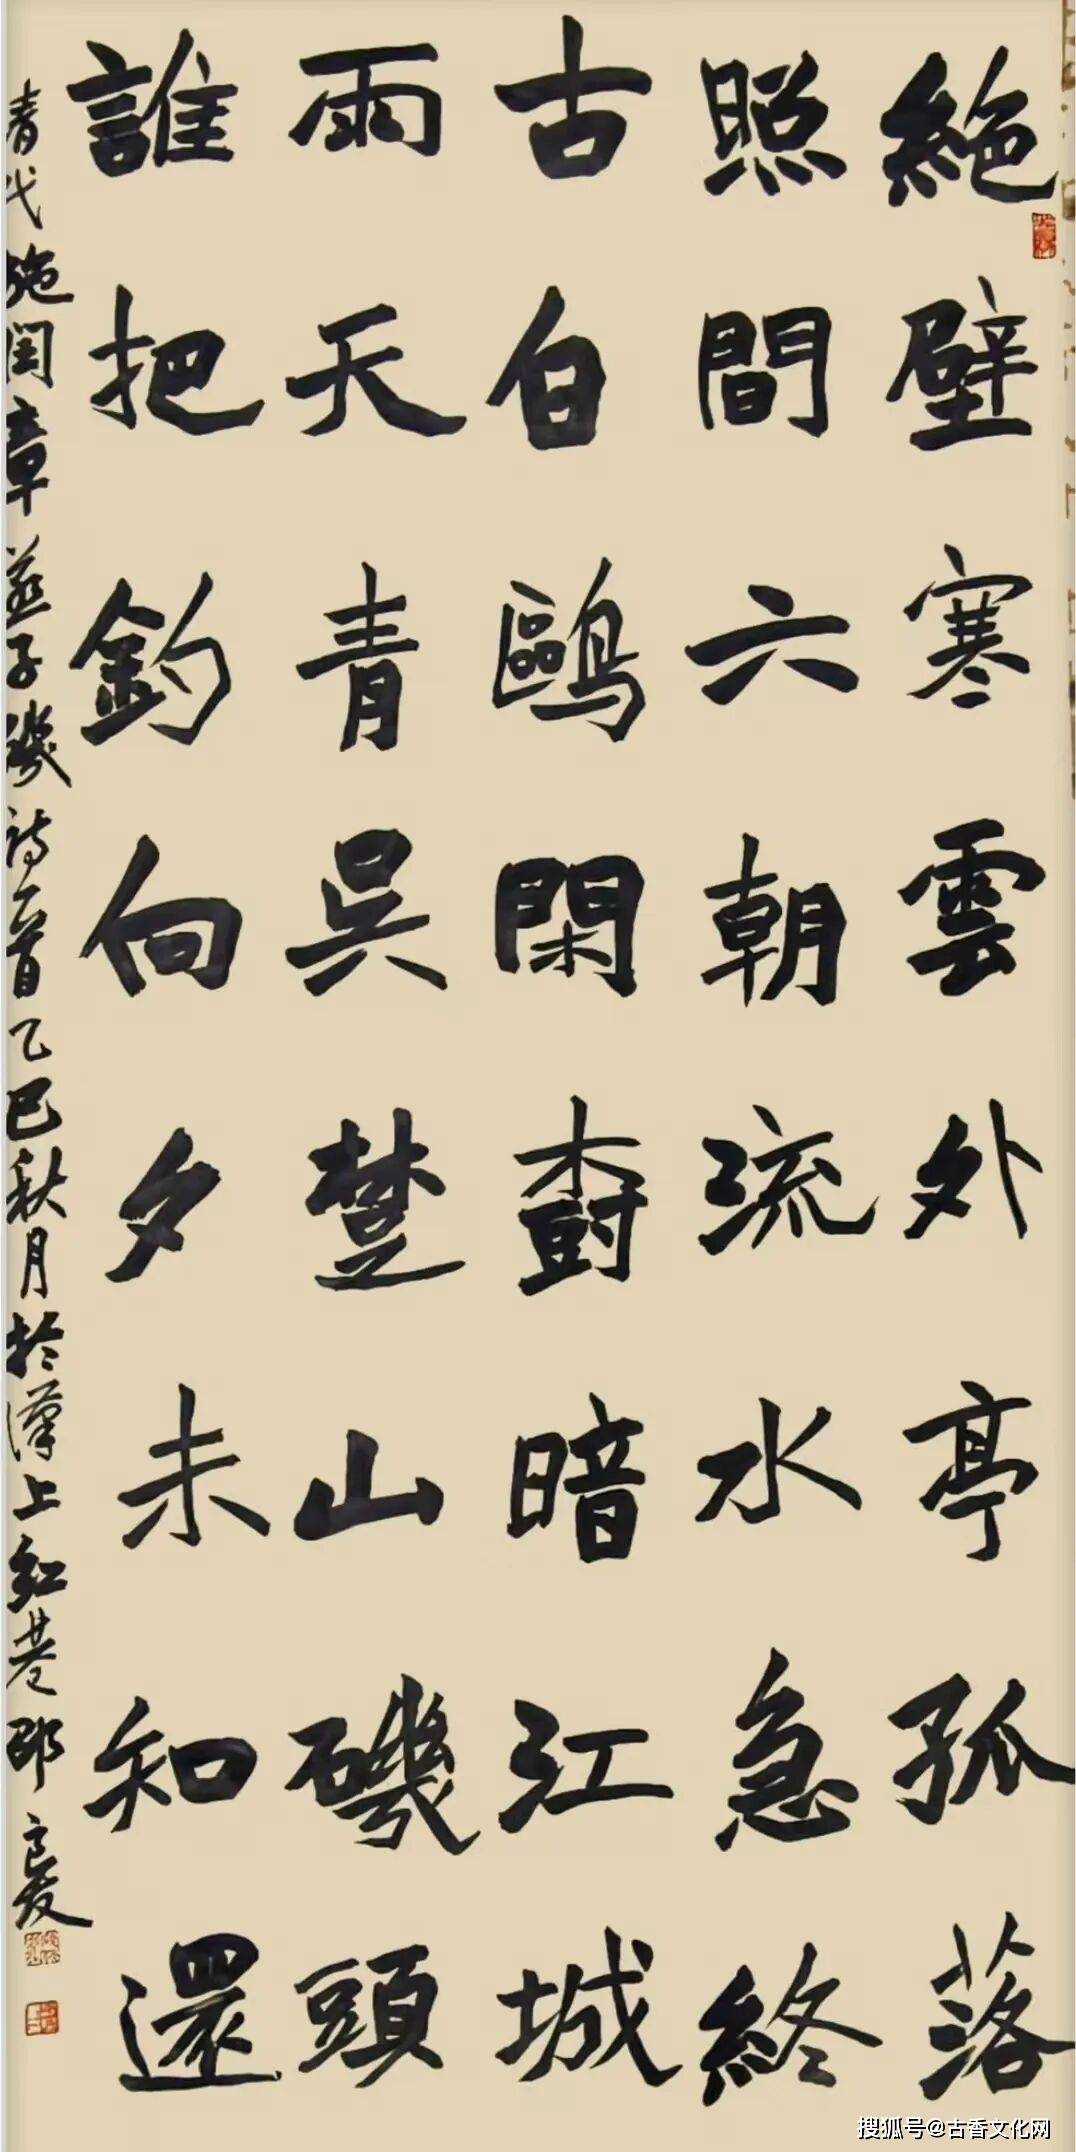 絕壁寒雲外亭孤落
照間六朝流水急終
古白鷗閑樹暗江城
雨天青吳楚山磯頭
誰把釣向夕未知還
清代施閏章燕子磯詩一首乙巳秋月於漢上紅巷邵
搜狐号@古香文化网